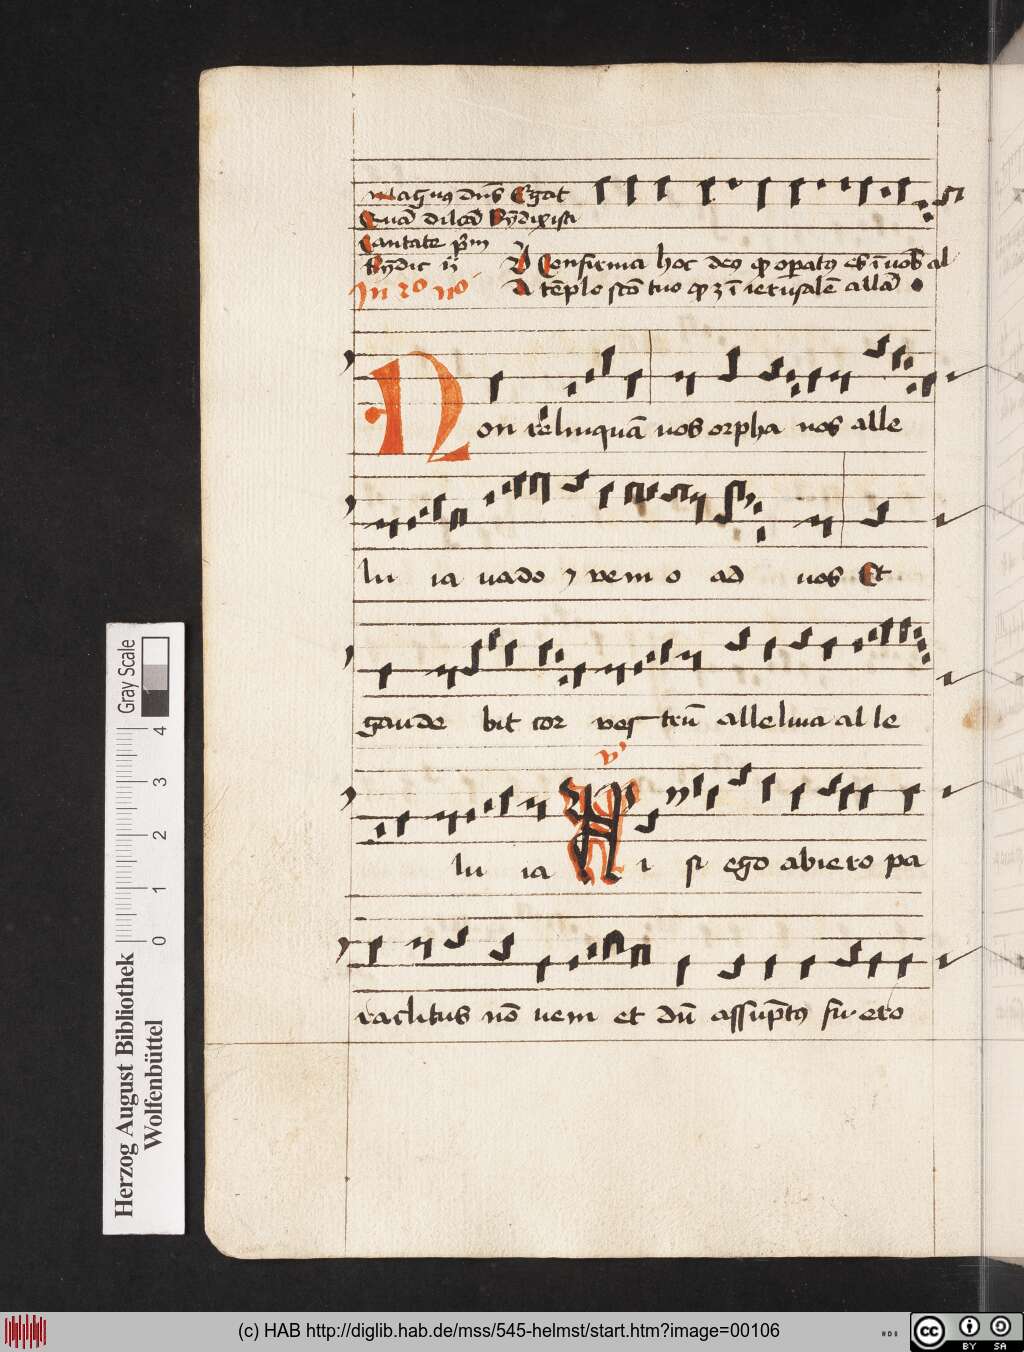 Magnus dns Exat
Qua dilca Bndixisti
Cantate pm
Bndic ii V Confirma hoc deus qd opatus es i nob al
In 2o no A templo sco tuo qd e i ierusale alla
Non relinqua vos orpha nos alle
lu ia vado & veni o ad vos Et
gaude bit cor ves tru alleluia al le
V
lu ia Ni si ego abiero pa
raclitus no veni et du assuptus fu ero
Gray Scale
0 1 2 3 4
Herzog August Bibliothek
Wolfenbüttel
(c) HAB http://diglib.hab.de/mss/545-helmst/start.htm?image=00106
cc BY SA